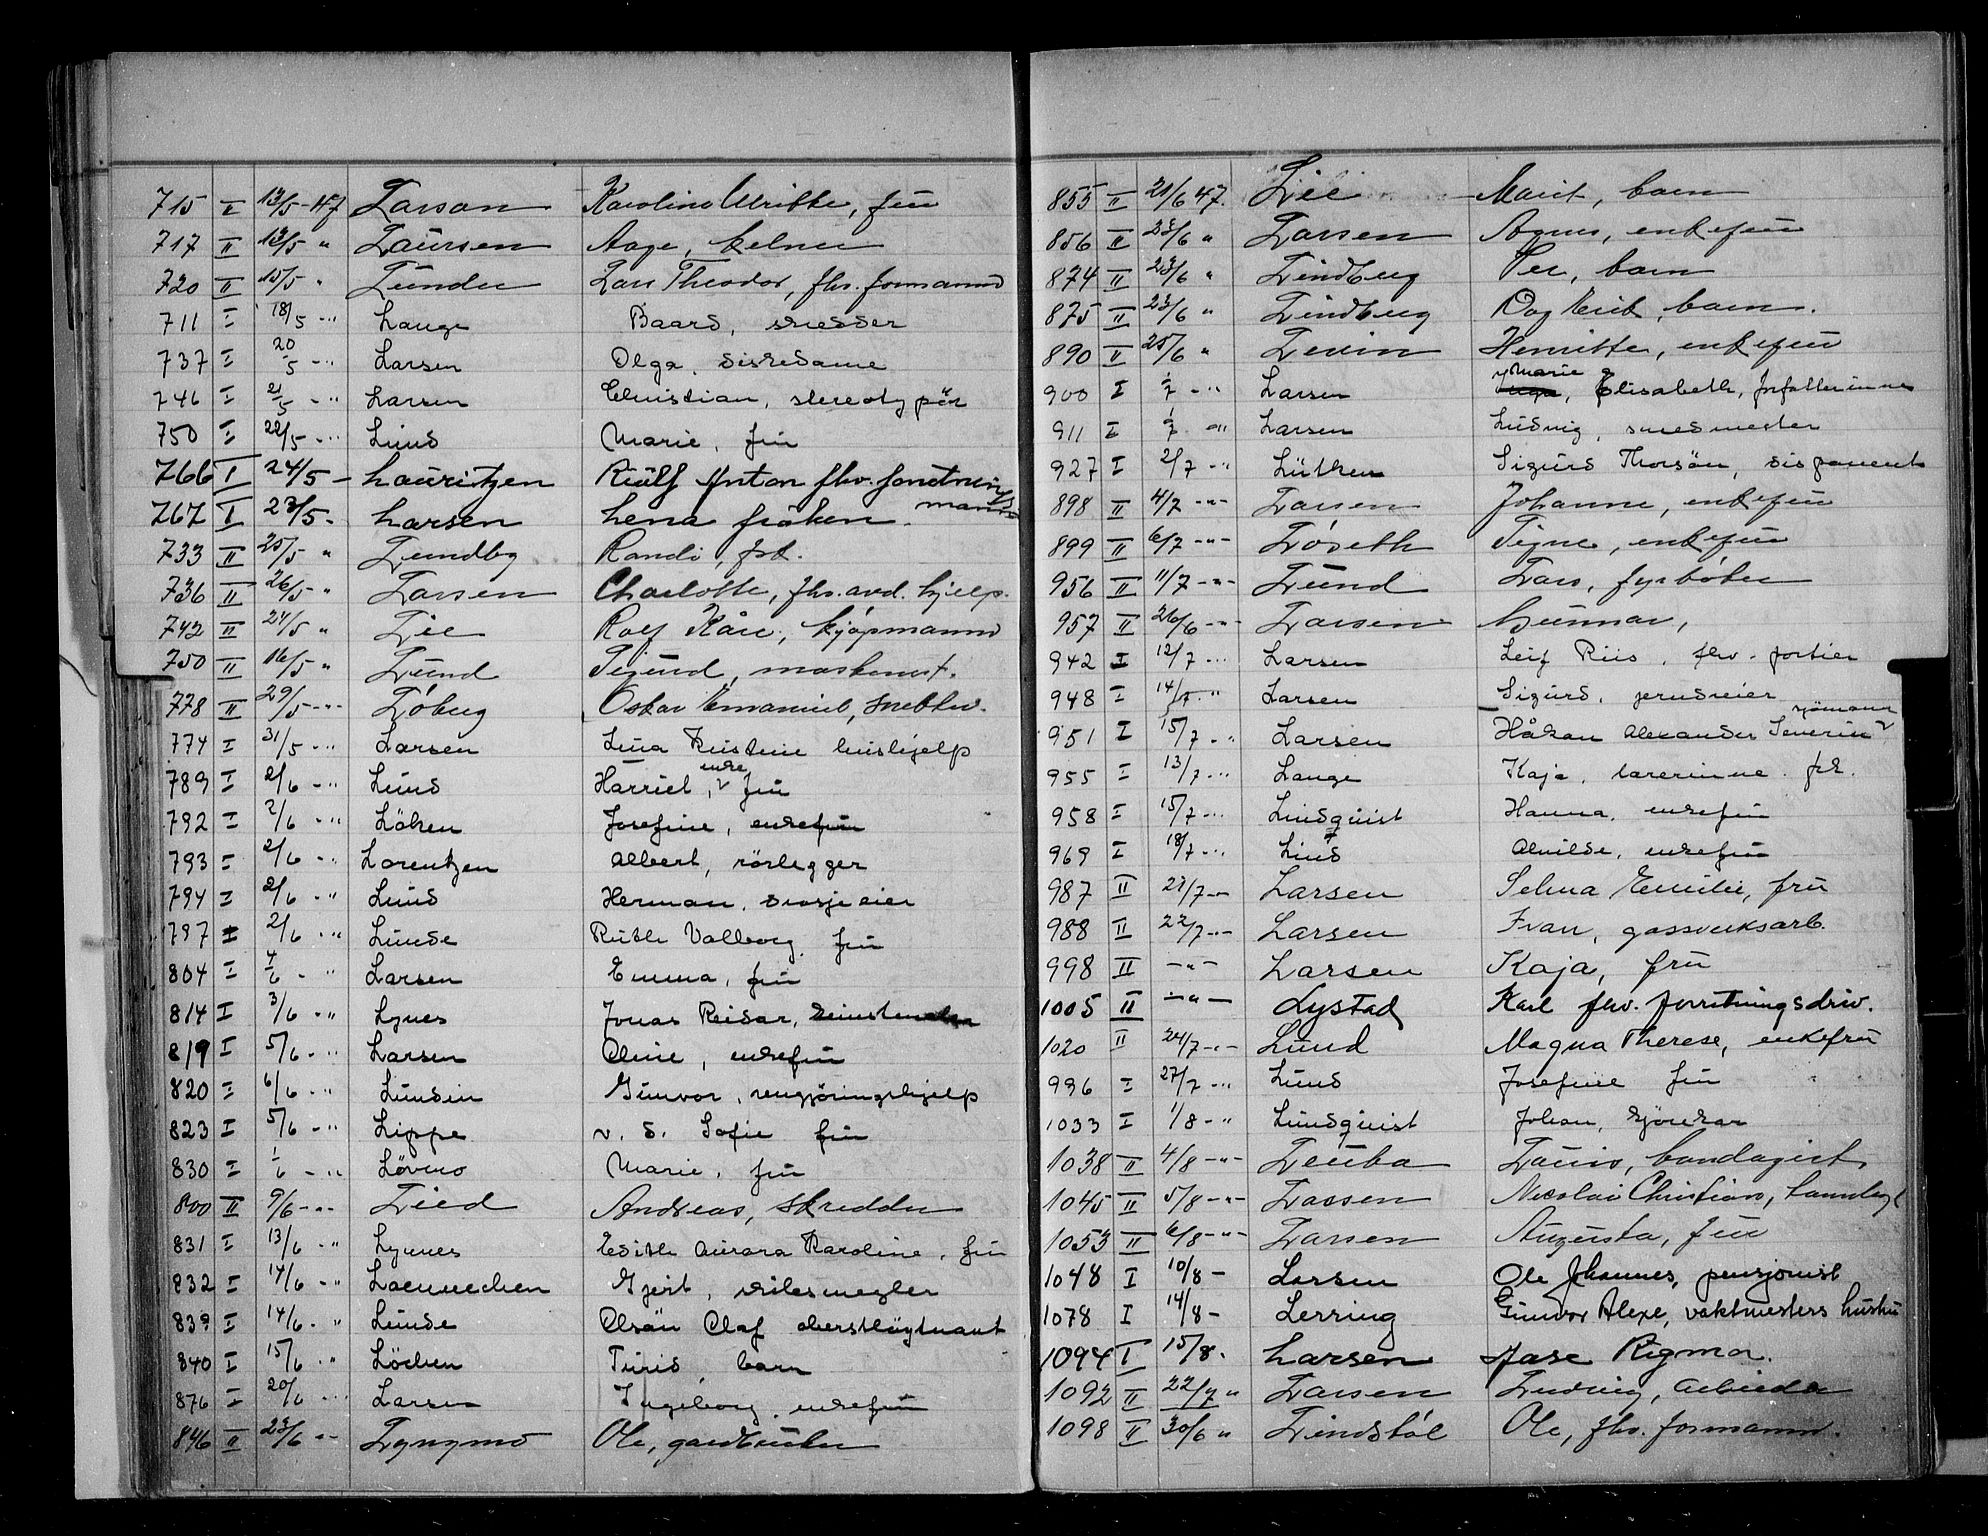 715 I 13/5-47 Larson Karoline Ulrikke, fru
717 II 13/5 " Laursen Aage, kelner
720 II 15/5 " Lunder Lars Theodor, fhv. formannd
711 I 18/5 -"- Lange Baard, skredder
737 I 20/5 -"- Larsen Olga, diskedame
746 I 21/5 -"- Larsen Christian, stereotypør
750 I 22/5 -"- Lund Marie, fru
766 I 24/5 - Lauritzen Rulf Anton fhv. forretningsmann
767 I 23/5 - Larsen Lena frøken
733 II 25/5 " Lundby Randi, frk.
736 II 26/5 " Larsen Charlotte, fhv. avd. hjelp.
742 II 24/5 " Lie Rolf Kåre, kjøpmannd
750 II 16/5 " Lund Sigurd, maskinist.
778 II 29/5 -"- Løberg Oskar Emanuel, snekker.
774 I 31/5 -"- Larsen Lina Kristine hushjelp
789 I 2/6 -"- Lund Harriet, enke fru
792 I 2/6 -"- Löken Josefine, enkefru
793 I 2/6 -"- Lorentzen Albert, rörlegger
794 I 2/6 -"- Lund Herman, drosjeeier
797 I 2/6 -"- Lunde Ruth Valborg, fru
804 I 4/6 -"- Larsen Emma, fru
814 I 3/6 -"- Lynes Jonas Reidar,
819 I 5/6 -"- Larsen Oline, enkefru
820 I 6/6 -"- Lundin Gunvor, rengjöringshjelp
823 I 5/6 -"- Lippe v. d. Sofie fru
830 I 1/6 -"- Lövmo Marie, fru
800 II 9/6 -"- Lied Andreas, skredder
831 I 13/6 -"- Lynes Edith Aurora Karoline, fru
832 I 14/6 -"- Laennechen Gjert, skibsmegler
839 I 14/6 -"- Lunde Olsön Olaf oberstløytnant
840 I 15/6 -"- Löchen Turid, barn
876 I 20/6 -"- Larsen Ingeborg, enkefru
846 II 23/6 -"- Lyngmo Ole, gardbruker
855 II 21/6 47. Lie Marit, barn
856 II 23/6 " Larsen Agnes, enkefru
874 II 23/6 " Lindberg Per, barn
875 II 23/6 " Lindberg Dag Erik, barn.
890 II 25/6 " Levin Henriette, enkefru
900 I 1/7 -"- Larsen Marie Elisabeth, forfatterinne
911 I 1/7 -"- Larsen Ludvig, smedmester
927 I 2/7 -"- Lütken Sigurd Thorsön, disponent
898 II 4/7 -"- Larsen Johanne, enkefru
899 II 6/7 -"- Löseth Signe, enkefru
956 II 11/7 -"- Lund Lars, fyrbøter
957 II 26/6 -"- Larsen Gunnar,
942 I 12/7 -"- Larsen Leif Riis, fhv. portier
948 I 14/7 -"- Larsen Sigurd, grudeeier
951 I 15/7 -"- Larsen Håkon Alexander Severin sjömann
955 I 13/7 -"- Lange Kaja, lærerinne. frk.
958 I 15/7 -"- Lindquist Hanna, enkefru
969 I 18/7 -"- Lind Alvilde, enkefru
987 II 21/7 -"- Larsen Selma Emilie, fru
988 II 22/7 -"- Larsen Ivan, gassverksarb.
998 II -"- Larsen Kaja, fru
1005 II -"- Lystad Karl fhv. forretningsdriv.
1020 II 24/7 -"- Lund Magna Therese, enkefru
996 I 27/7 -"- Lund Josefine fru
1033 I 1/8 -"- Lundquist Johan, sjåför
1038 II 4/8 -"- Leuba Louis, bandagist
1045 II 5/8 -"- Lassen Nicolai Christian, tannlege
1053 II 6/8 -"- Larsen Augusta, fru
1048 I 10/8 - Larsen Ole Johannes, pensjonist
1078 I 14/8 - Lerring Gunvor Alexe, vaktmesters hustru
1094 I 15/8 - Larsen Aase Rigmor.
1092 II 22/7 " Larsen Ludvig, arbeider
1098 II 30/6 " Lindstöl Ole, fhv. formannd.